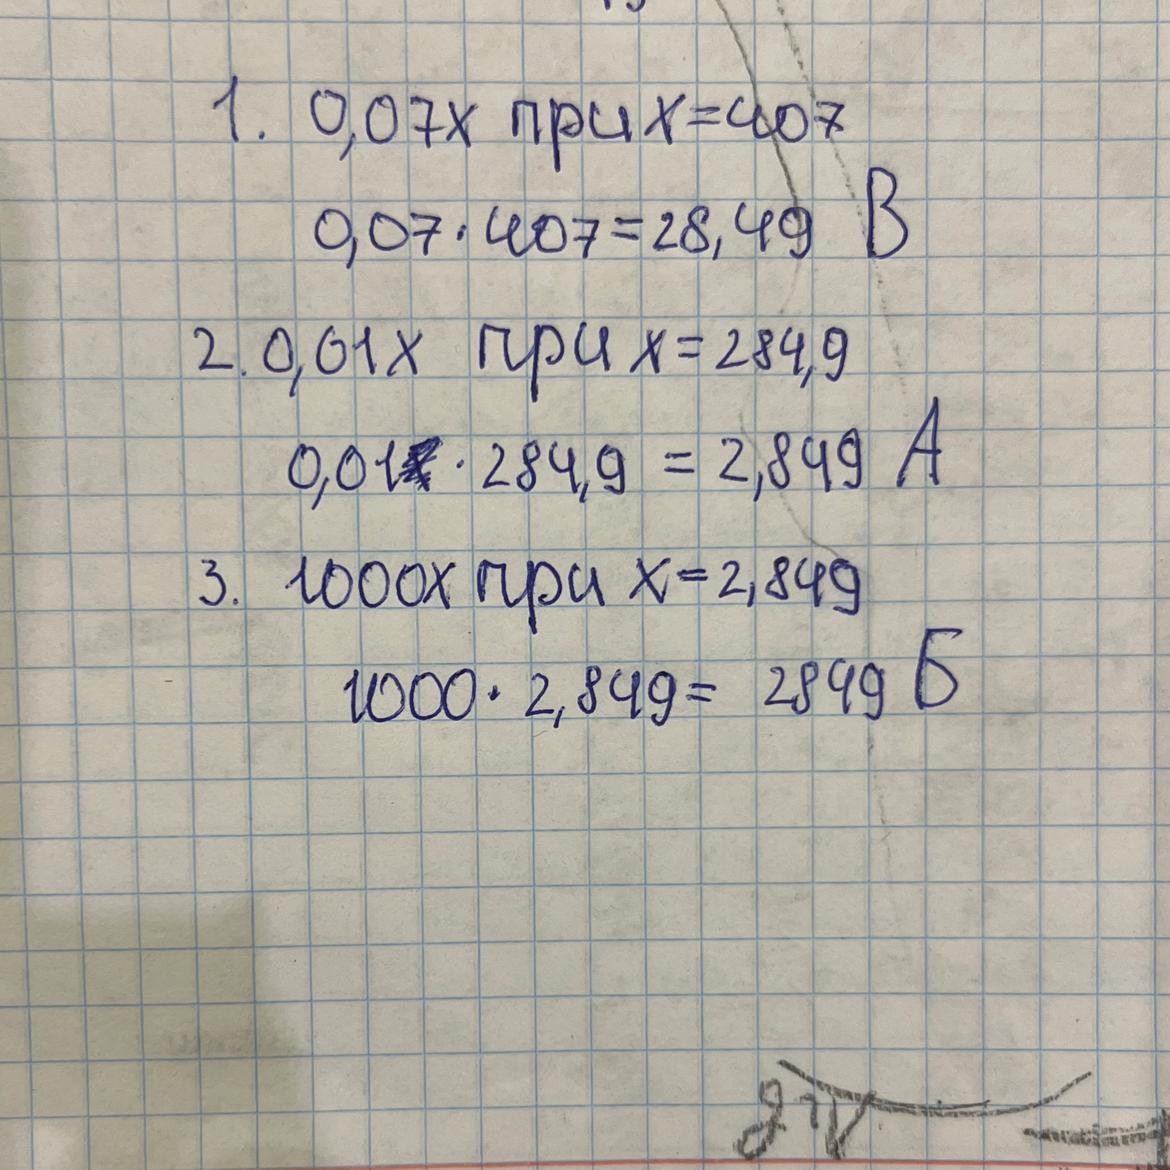 1. 0,07x при x=407
0,07·407=28,49 В
2. 0,01x при x=284,9
0,01 · 284,9 = 2,849 А
3. 1000x при x=2,849
1000· 2,849= 2849 Б